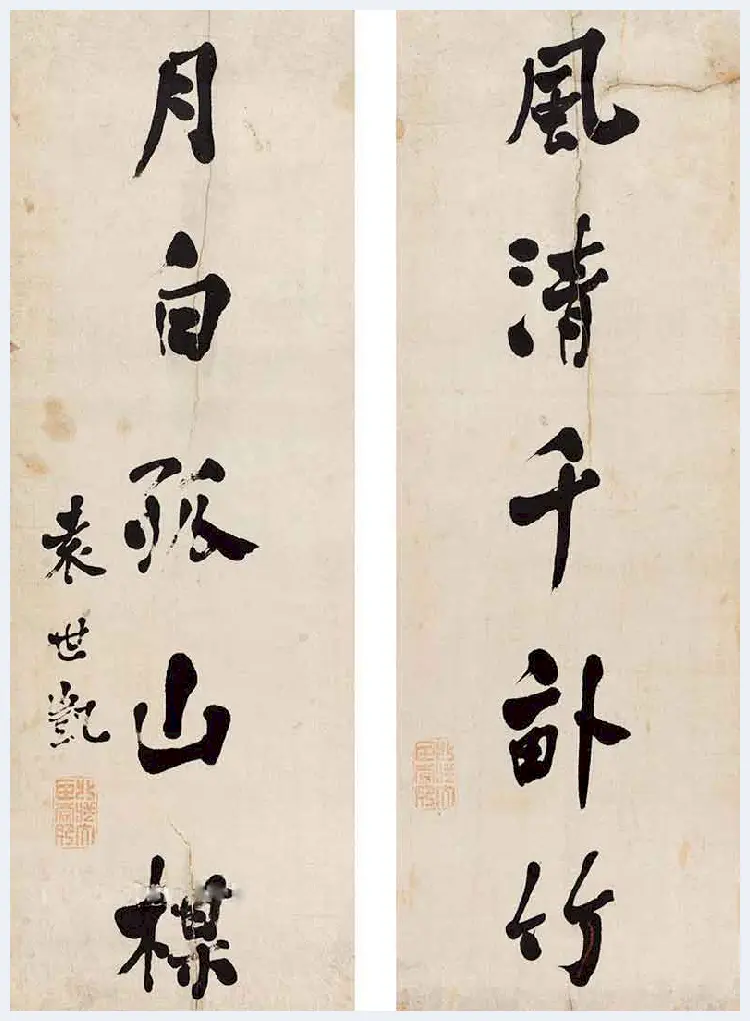 風清千畝竹
月白孤山楳
袁世凱